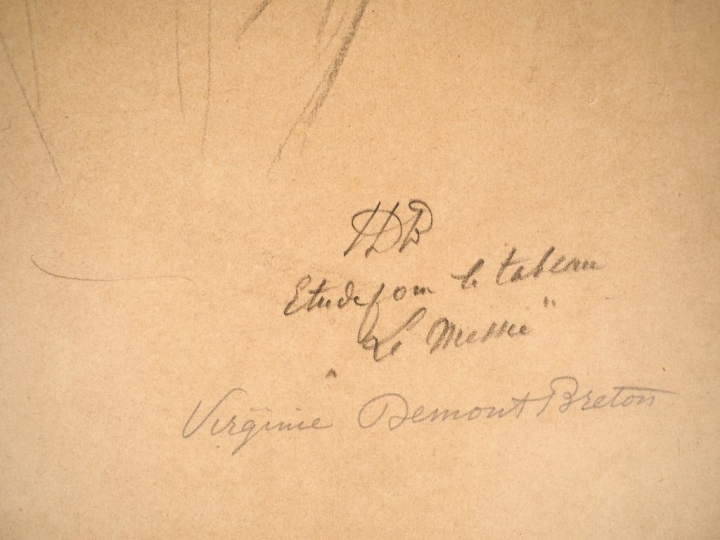 VDB
Etude pour le tableau
"Le Messie"
Virginie Demont Breton